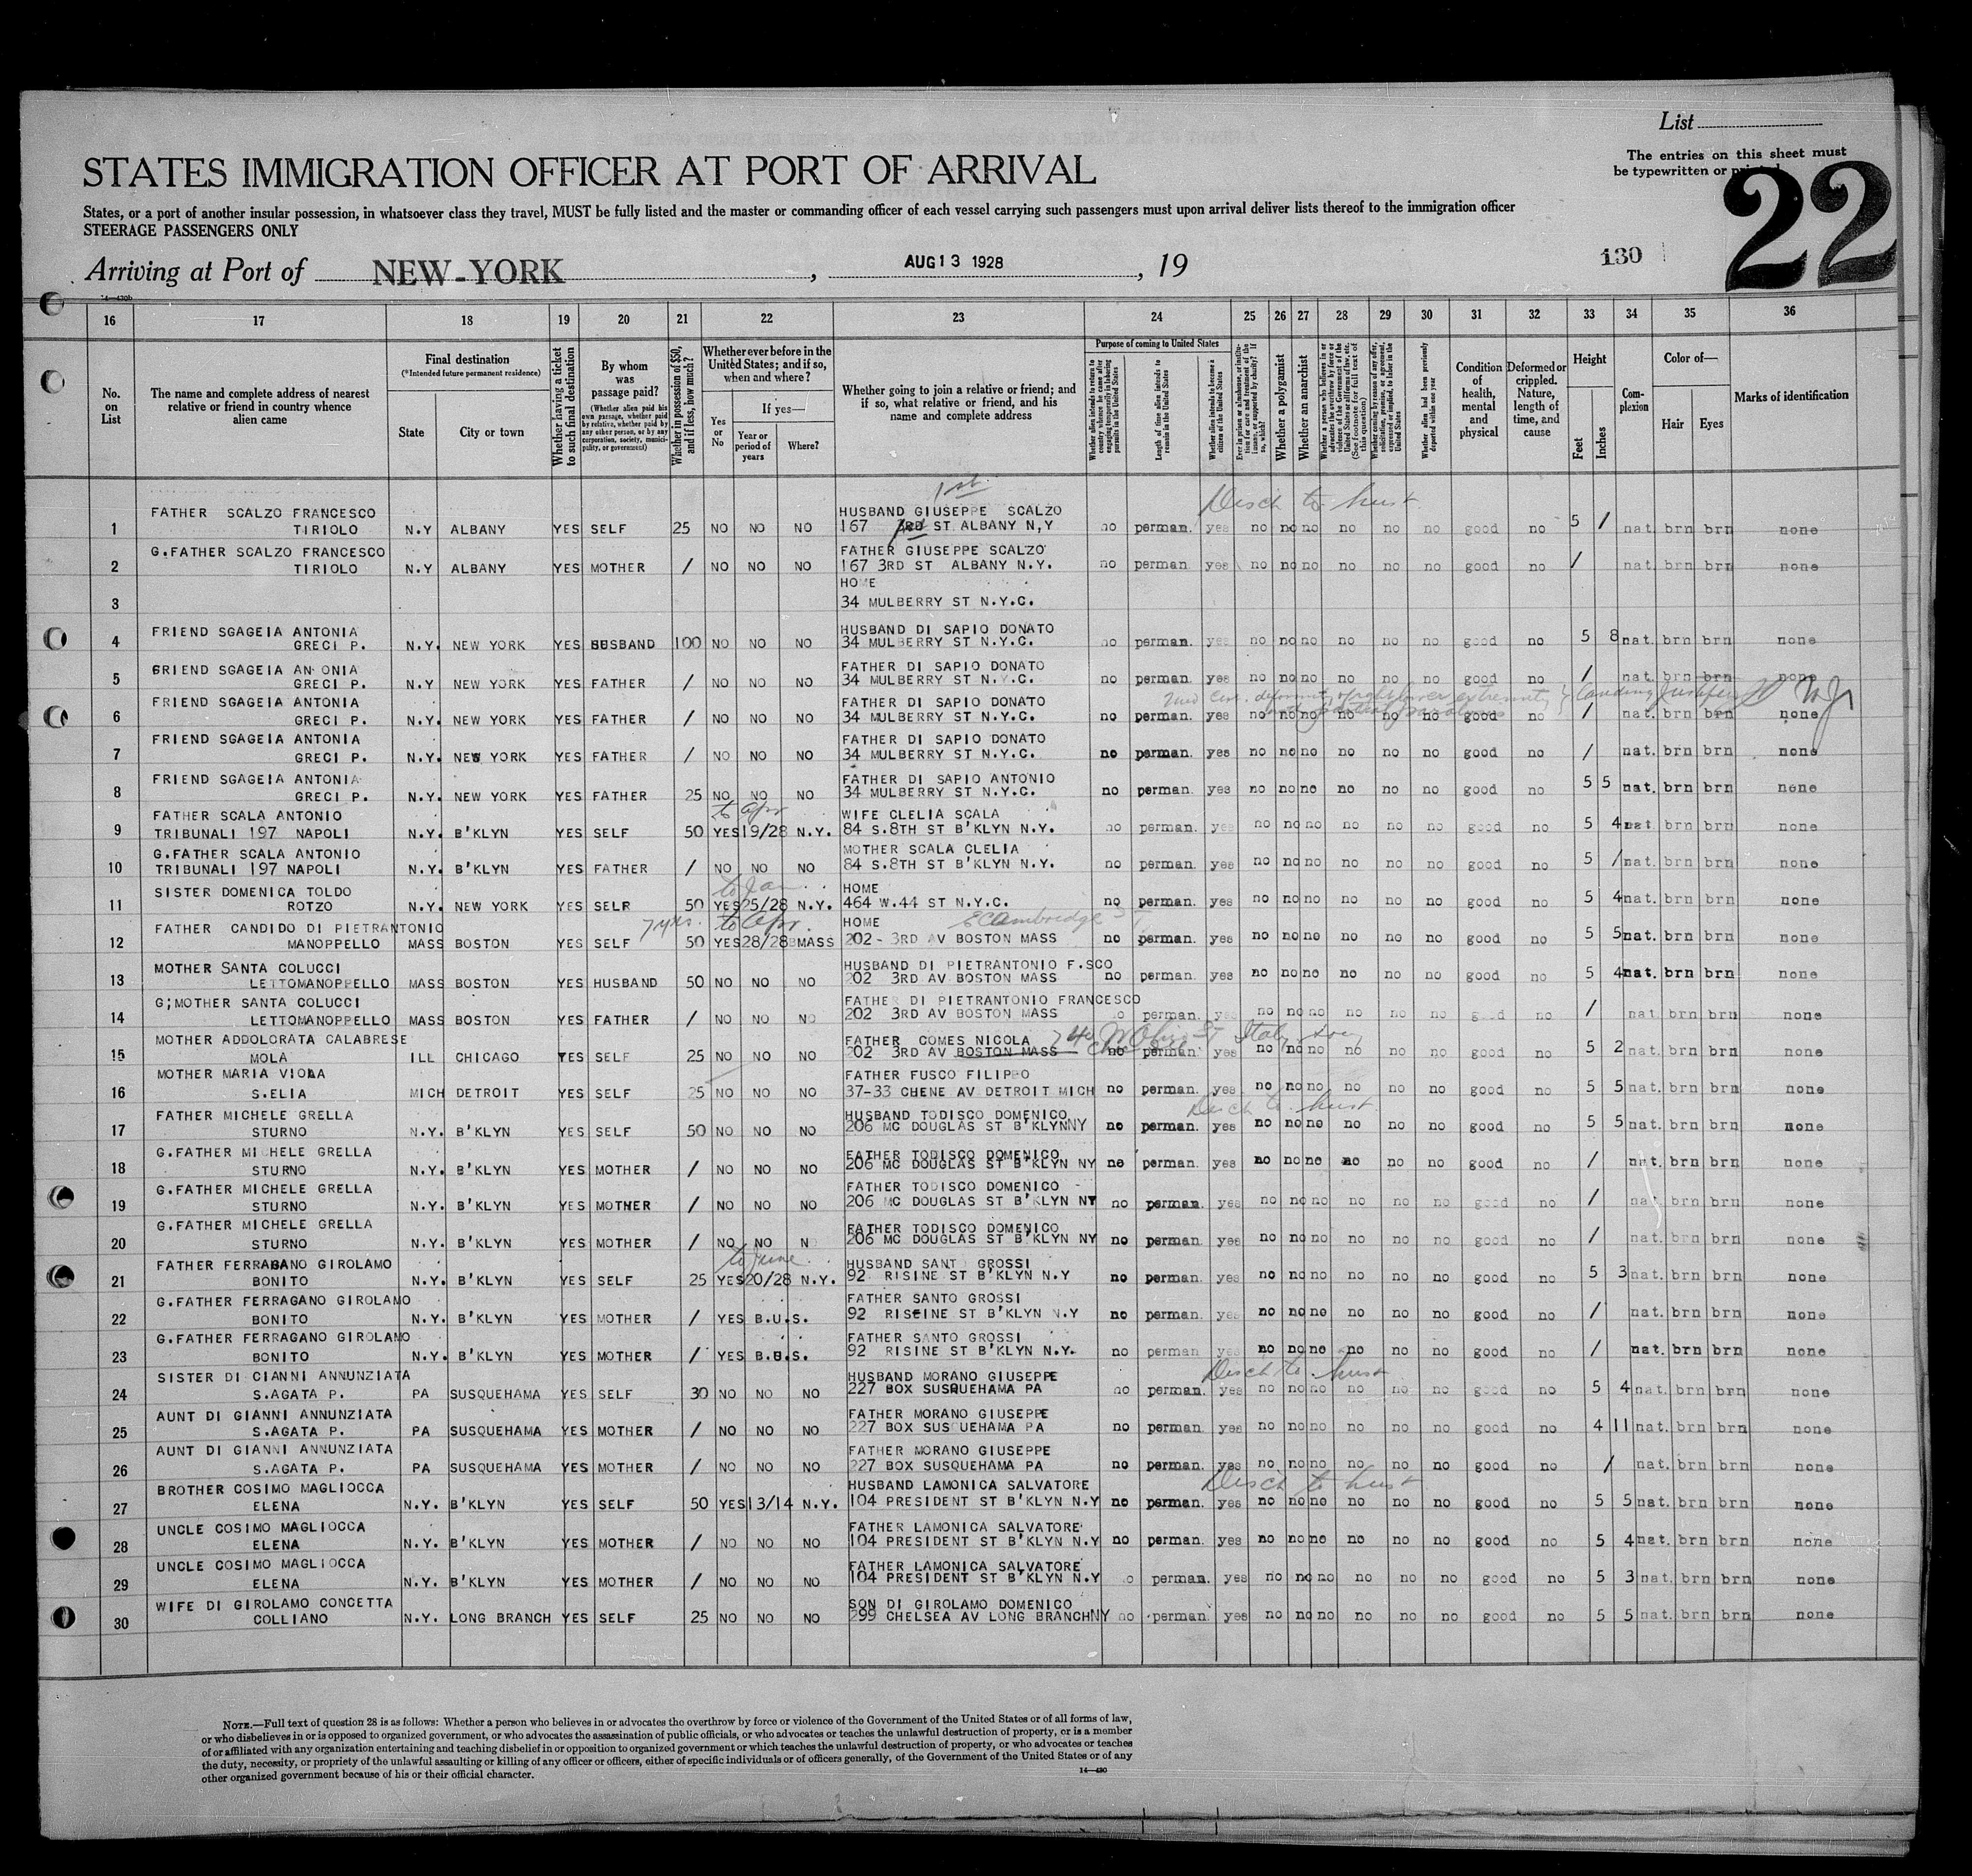 List
The entries on this sheet must
be typewritten or printed
22
STATES IMMIGRATION OFFICER AT PORT OF ARRIVAL
States, or a port of another insular possession, in whatsoever class they travel, MUST be fully listed and the master or commanding officer of each vessel carrying such passengers must upon arrival deliver lists thereof to the immigration officer
STEERAGE PASSENGERS ONLY
130
Arriving at Port of NEW-YORK, AUG 13 1928, 19
14-430b
16 17 18 19 20 21 22 23 24 25 26 27 28 29 30 31 32 33 34 35 36
No. on List
The name and complete address of nearest relative or friend in country whence alien came
Final destination
(*Intended future permanent residence)
State
City or town
Whether having a ticket to such final destination
By whom was passage paid?
(Whether alien paid his own passage, whether paid by relative, whether paid by any other person, or by any corporation, society, municipality, or government)
Whether in possession of $50, and if less, how much?
Whether ever before in the United States; and if so, when and where?
Yes or No
If yes—
Year or period of years
Where?
Whether going to join a relative or friend; and if so, what relative or friend, and his name and complete address
Purpose of coming to United States
Length of time alien intends to remain in the United States
Whether alien intends to become a citizen of the United States
Whether a polygamist
Whether an anarchist
Condition of health, mental and physical
Deformed or crippled. Nature, length of time, and cause
Height
Feet
Inches
Complexion
Color of—
Hair
Eyes
Marks of identification
1st
Disch to husb
FATHER SCALZO FRANCESCO HUSBAND GIUSEPPE SCALZO
1 TIRIOLO N.Y ALBANY YES SELF 25 NO NO NO 167 3RD ST ALBANY N,Y no perman. yes no no no no no no good no 5 / nat. brn brn none
G.FATHER SCALZO FRANCESCO FATHER GIUSEPPE SCALZO
2 TIRIOLO N.Y ALBANY YES MOTHER / NO NO NO 167 3RD ST ALBANY N.Y. no perman. yes no no no no no no good no / nat. brn brn none
HOME
3 34 MULBERRY ST N.Y.C.
FRIEND SGAGEIA ANTONIA HUSBAND DI SAPIO DONATO
4 GRECI P. N.Y. NEW YORK YES HUSBAND 100 NO NO NO 34 MULBERRY ST N.Y.C. no perman. yes no no no no no no good no 5 8 nat. brn brn none
GRIEND SGAGEIA ANTONIA FATHER DI SAPIO DONATO
5 GRECI P. N.Y NEW YORK YES FATHER / NO NO NO 34 MULBERRY ST N.Y.C. no perman. yes no no no no no no good no / nat. brn brn none
FRIEND SGAGEIA ANTONIA FATHER DI SAPIO DONATO
6 GRECI P. N.Y. NEW YORK YES FATHER / NO NO NO 34 MULBERRY ST N.Y.C. no perman. yes no no no no no no good no / nat. brn brn none
FRIEND SGAGEIA ANTONIA FATHER DI SAPIO DONATO
7 GRECI P. N.Y. NEW YORK YES FATHER / NO NO NO 34 MULBERRY ST N.Y.C. no perman. yes no no no no no no good no / nat. brn brn none
FRIEND SGAGEIA ANTONIA FATHER DI SAPIO ANTONIO
8 GRECI P. N.Y. NEW YORK YES FATHER 25 NO NO NO 34 MULBERRY ST N.Y.C. no perman. yes no no no no no no good no 5 5 nat. brn brn none
to apr
FATHER SCALA ANTONIO WIFE CLELIA SCALA
9 TRIBUNALI 197 NAPOLI N.Y. B'KLYN YES SELF 50 YES 19/28 N.Y. 84 S.8TH ST B'KLYN N.Y. no perman. yes no no no no no no good no 5 4 nat. brn brn none
G.FATHER SCALA ANTONIO MOTHER SCALA CLELIA
10 TRIBUNALI 197 NAPOLI N.Y. B'KLYN YES FATHER / NO NO NO 84 S.8TH ST B'KLYN N.Y. no perman. yes no no no no no no good no 5 / nat. brn brn none
to Jan
SISTER DOMENICA TOLDO HOME
11 ROTZO N.Y. NEW YORK YES SELF 50 YES 25/28 N.Y. 464 W.44 ST N.Y.C. no perman. yes no no no no no no good no 5 4 nat. brn brn none
7 yrs. to Apr. E Cambridge ST
FATHER CANDIDO DI PIETRANTONIO HOME
12 MANOPPELLO MASS BOSTON YES SELF 50 YES 28/28 MASS 202 - 3RD AV BOSTON MASS no perman. yes no no no no no no good no 5 5 nat. brn brn none
MOTHER SANTA COLUCCI HUSBAND DI PIETRANTONIO F.SCO
13 LETTOMANOPPELLO MASS BOSTON YES HUSBAND 50 NO NO NO 202 3RD AV BOSTON MASS no perman. yes no no no no no no good no 5 4 nat. brn brn none
G;MOTHER SANTA COLUCCI FATHER DI PIETRANTONIO FRANCESCO
14 LETTOMANOPPELLO MASS BOSTON YES FATHER / NO NO NO 202 3RD AV BOSTON MASS no perman. yes no no no no no no good no / nat. brn brn none
MOTHER ADDOLORATA CALABRESE FATHER COMES NICOLA
15 MOLA ILL CHICAGO YES SELF 25 NO NO NO 202 3RD AV BOSTON MASS no perman. yes no no no no no no good no 5 2 nat. brn brn none
MOTHER MARIA VIOLA FATHER FUSCO FILIPPO
16 S.ELIA MICH DETROIT YES SELF 25 NO NO NO 37-33 CHENE AV DETROIT MICH no perman. yes no no no no no no good no 5 5 nat. brn brn none
Disch to husb
FATHER MICHELE GRELLA HUSBAND TODISCO DOMENICO
17 STURNO N.Y. B'KLYN YES SELF 50 NO NO NO 206 MC DOUGLAS ST B'KLYNNY no perman. yes no no no no no no good no 5 5 nat. brn brn none
G.FATHER MICHELE GRELLA FATHER TODISCO DOMENICO
18 STURNO N.Y. B'KLYN YES MOTHER / NO NO NO 206 MC DOUGLAS ST B'KLYN NY no perman. yes no no no no no no good no / nat. brn brn none
G.FATHER MICHELE GRELLA FATHER TODISCO DOMENICO
19 STURNO N.Y. B'KLYN YES MOTHER / NO NO NO 206 MC DOUGLAS ST B'KLYN NY no perman. yes no no no no no no good no / nat. brn brn none
G.FATHER MICHELE GRELLA FATHER TODISCO DOMENICO
20 STURNO N.Y. B'KLYN YES MOTHER / NO NO NO 206 MC DOUGLAS ST B'KLYN NY no perman. yes no no no no no no good no / nat. brn brn none
to June
FATHER FERRAGANO GIROLAMO HUSBAND SANT GROSSI
21 BONITO N.Y. B'KLYN YES SELF 25 YES 20/28 N.Y. 92 RISINE ST B'KLYN N.Y no perman. yes no no no no no no good no 5 3 nat. brn brn none
G.FATHER FERRAGANO GIROLAMO FATHER SANTO GROSSI
22 BONITO N.Y. B'KLYN YES MOTHER / YES B.U.S. 92 RISEINE ST B'KLYN N.Y no perman. yes no no no no no no good no / nat. brn brn none
G.FATHER FERRAGANO GIROLAMO FATHER SANTO GROSSI
23 BONITO N.Y. B'KLYN YES MOTHER / YES B.U.S. 92 RISINE ST B'KLYN N.Y. no perman yes no no no no no no good no / nat. brn brn none
Disch to husb
SISTER DI GIANNI ANNUNZIATA HUSBAND MORANO GIUSEPPE
24 S.AGATA P. PA SUSQUEHAMA YES SELF 30 NO NO NO 227 BOX SUSQUEHAMA PA no perman. yes no no no no no no good no 5 4 nat. brn brn none
AUNT DI GIANNI ANNUNZIATA FATHER MORANO GIUSEPPE
25 S.AGATA P. PA SUSQUEHAMA YES MOTHER / NO NO NO 227 BOX SUSQUEHAMA PA no perman. yes no no no no no no good no 4 11 nat. brn brn none
AUNT DI GIANNI ANNUNZIATA FATHER MORANO GIUSEPPE
26 S.AGATA P. PA SUSQUEHAMA YES MOTHER / NO NO NO 227 BOX SUSQUEHAMA PA no perman. yes no no no no no no good no / nat. brn brn none
Disch to husb
BROTHER COSIMO MAGLIOCCA HUSBAND LAMONICA SALVATORE
27 ELENA N.Y. B'KLYN YES SELF 50 YES 13/14 N.Y. 104 PRESIDENT ST B'KLYN N.Y no perman. yes no no no no no no good no 5 5 nat. brn brn none
UNCLE COSIMO MAGLIOCCA FATHER LAMONICA SALVATORE
28 ELENA N.Y. B'KLYN YES MOTHER / NO NO NO 104 PRESIDENT ST B'KLYN N.Y no perman. yes no no no no no no good no 5 4 nat. brn brn none
UNCLE COSIMO MAGLIOCCA FATHER LAMONICA SALVATORE
29 ELENA N.Y. B'KLYN YES MOTHER / NO NO NO 104 PRESIDENT ST B'KLYN N.Y no perman. yes no no no no no no good no 5 3 nat. brn brn none
WIFE DI GIROLAMO CONCETTA SON DI GIROLAMO DOMENICO
30 COLLIANO N.Y. LONG BRANCH YES SELF 25 NO NO NO 299 CHELSEA AV LONG BRANCHNY no perman. yes no no no no no no good no 5 5 nat. brn brn none
NOTE.—Full text of question 28 is as follows: Whether a person who believes in or advocates the overthrow by force or violence of the Government of the United States or of all forms of law,
or who disbelieves in or is opposed to organized government, or who advocates the assassination of public officials, or who advocates or teaches the unlawful destruction of property, or is a member
of or affiliated with any organization entertaining and teaching disbelief in or opposition to organized government or which teaches the unlawful destruction of property, or who advocates or teaches
the duty, necessity, or propriety of the unlawful assaulting or killing of any officer or officers, either of specific individuals or of officers generally, of the Government of the United States or of any
other organized government because of his or their official character.
14—430